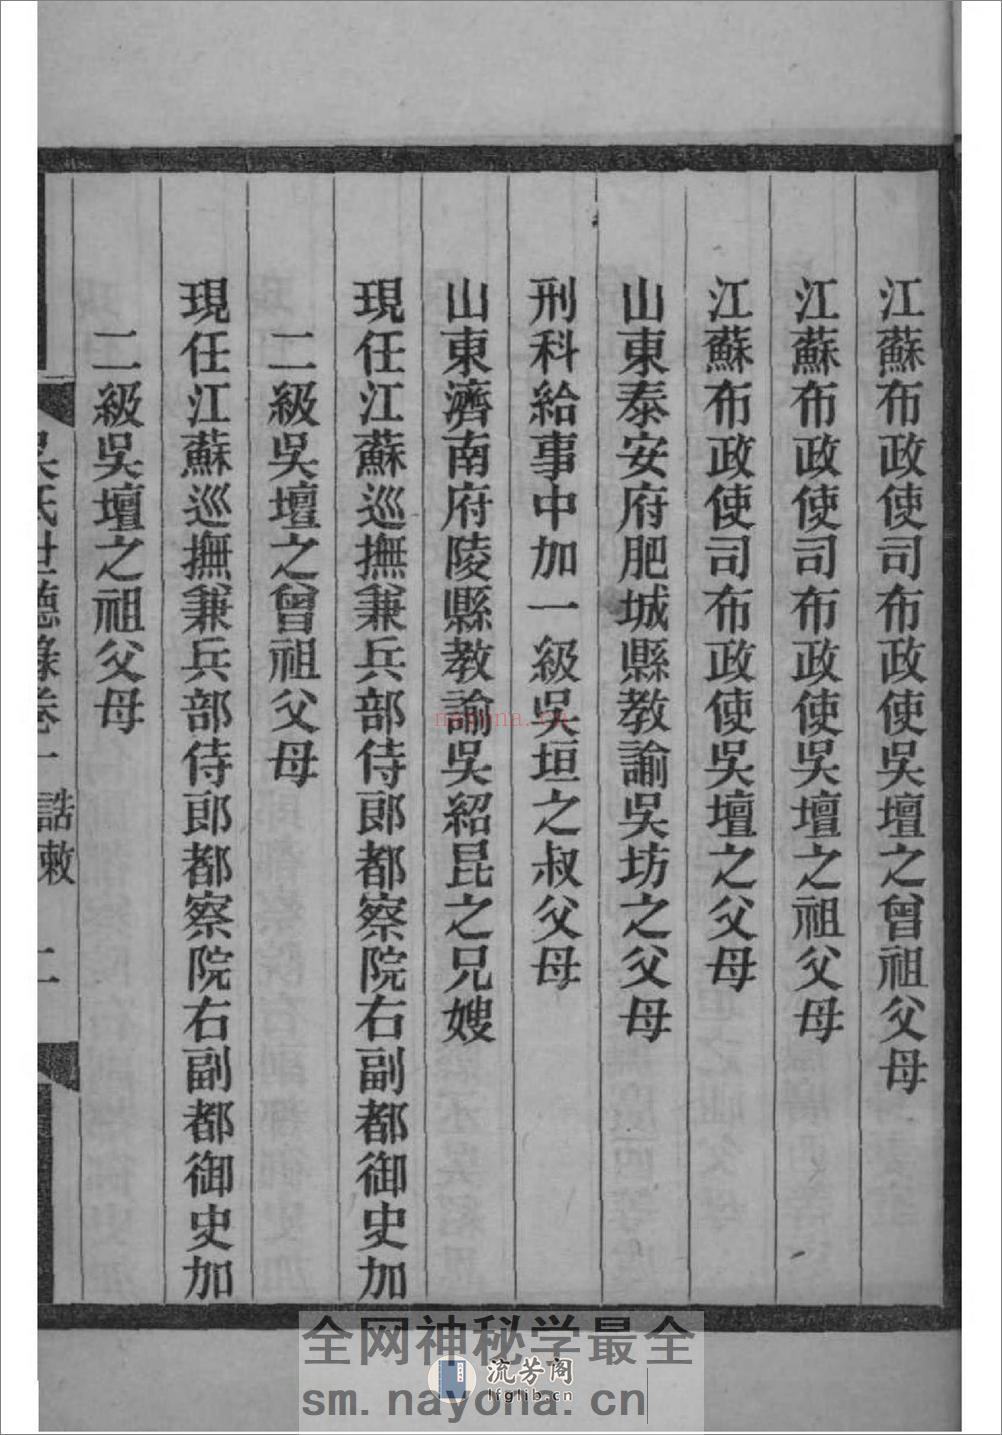 江蘇布政使司布政使吳壇之曾祖父母
江蘇布政使司布政使吳壇之祖父母
江蘇布政使司布政使吳壇之父母
山東泰安府肥城縣教諭吳坊之父母
刑科給事中加一級吳垣之叔父母
山東濟南府陵縣教諭吳紹昆之兄嫂
現任江蘇巡撫兼兵部侍郎都察院右副都御史加
二級吳壇之曾祖父母
現任江蘇巡撫兼兵部侍郎都察院右副都御史加
二級吳壇之祖父母
吳氏世德錄卷一 誥敕 二
nayona.cn
全网神秘学最全
流芳阁
lfglib.cn
sm.nayona.cn